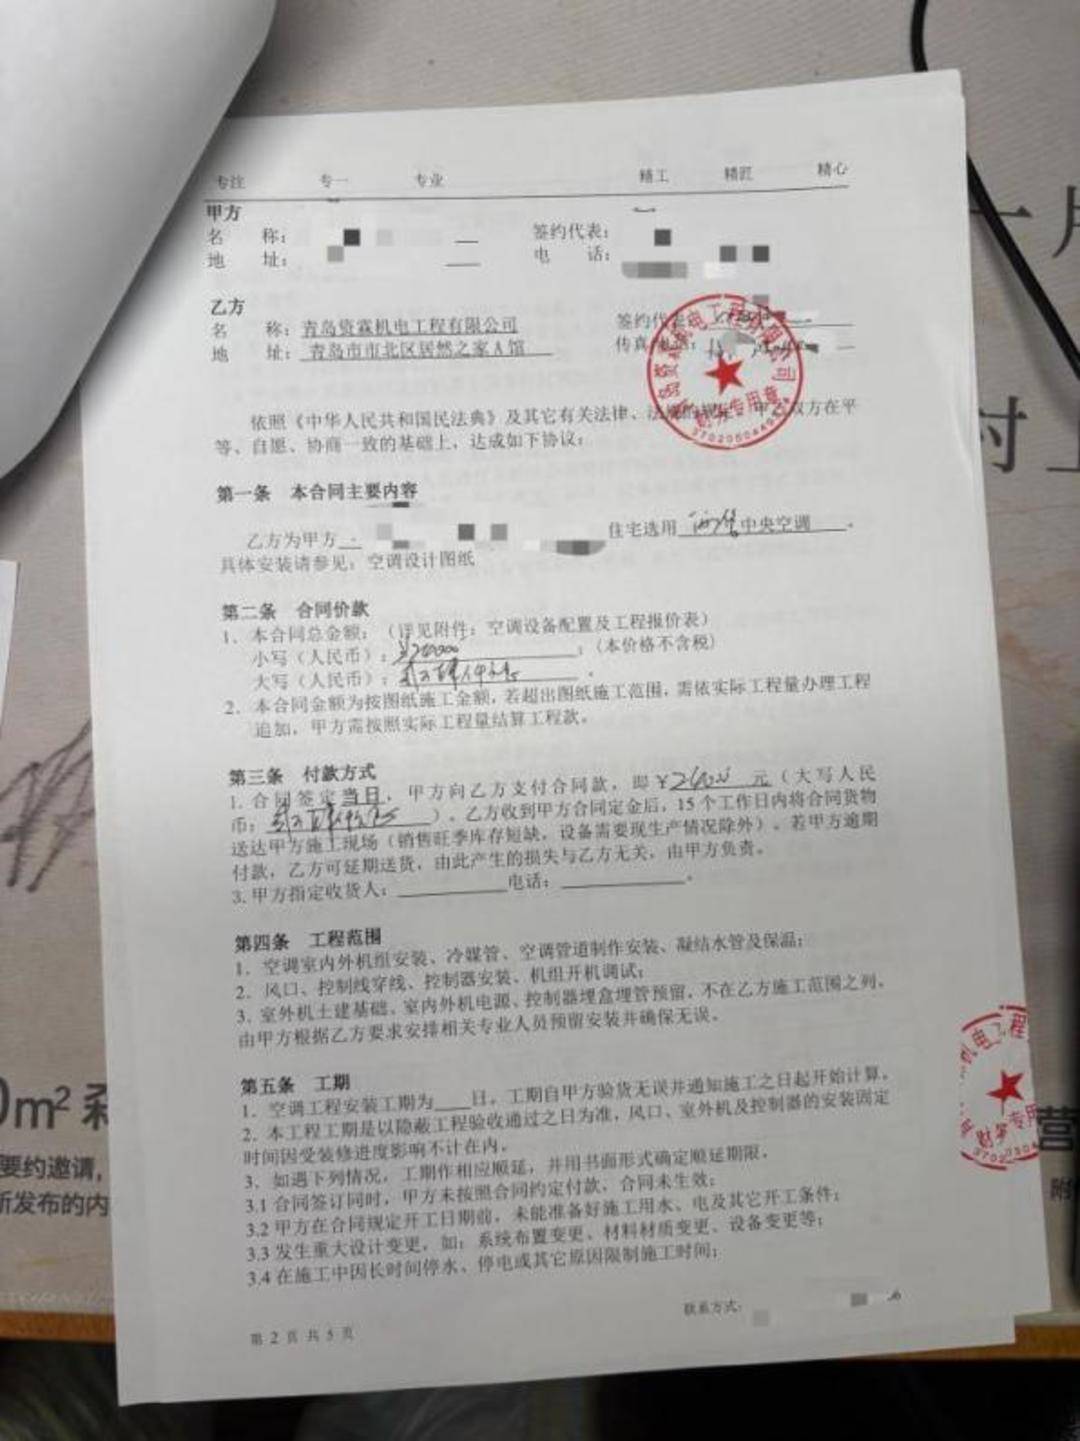 专注 专一 专业 精工 精匠 精心
甲方
名 称: 签约代表:
地 址: 电 话:
乙方
名 称:青岛资霖机电工程有限公司 签约代表
地 址:青岛市市北区居然之家A馆 传真
依照《中华人民共和国民法典》及其它有关法律、法规的规定,甲乙双方在平
等、自愿、协商一致的基础上,达成如下协议:
第一条 本合同主要内容
乙方为甲方 住宅选用 中央空调 。
具体安装请参见:空调设计图纸
第二条 合同价款
1、本合同总金额:(详见附件:空调设备配置及工程报价表)
小写(人民币): ;(本价格不含税)
大写(人民币): 。
2、本合同金额为按图纸施工金额,若超出图纸施工范围,需依实际工程量办理工程
追加,甲方需按照实际工程量结算工程款。
第三条 付款方式
1.合同签定当日,甲方向乙方支付合同款,即¥ 元(大写人民
币: )。乙方收到甲方合同定金后,15个工作日内将合同货物
送达甲方施工现场(销售旺季库存短缺,设备需要现生产情况除外)。若甲方逾期
付款,乙方可延期送货,由此产生的损失与乙方无关,由甲方负责。
3.甲方指定收货人: 电话: 。
第四条 工程范围
1、空调室内外机组安装、冷媒管、空调管道制作安装、凝结水管及保温;
2、风口、控制线穿线、控制器安装、机组开机调试;
3、室外机土建基础,室内外机电源、控制器埋盒埋管预留,不在乙方施工范围之列,
由甲方根据乙方要求安排相关专业人员预留安装并确保无误。
第五条 工期
1、空调工程安装工期为 日,工期自甲方验货无误并通知施工之日起开始计算。
2、本工程工期是以隐蔽工程验收通过之日为准,风口、室外机及控制器的安装固定
时间因受装修进度影响不计在内。
3、如遇下列情况,工期作相应顺延,并用书面形式确定顺延期限。
3.1 合同签订同时,甲方未按照合同约定付款,合同未生效;
3.2 甲方在合同规定开工日期前,未能准备好施工用水、电及其它开工条件;
3.3 发生重大设计变更,如:系统布置变更、材料材质变更、设备变更等;
3.4 在施工中因长时间停水、停电或其它原因限制施工时间;
第 2 页 共 5 页 联系方式: